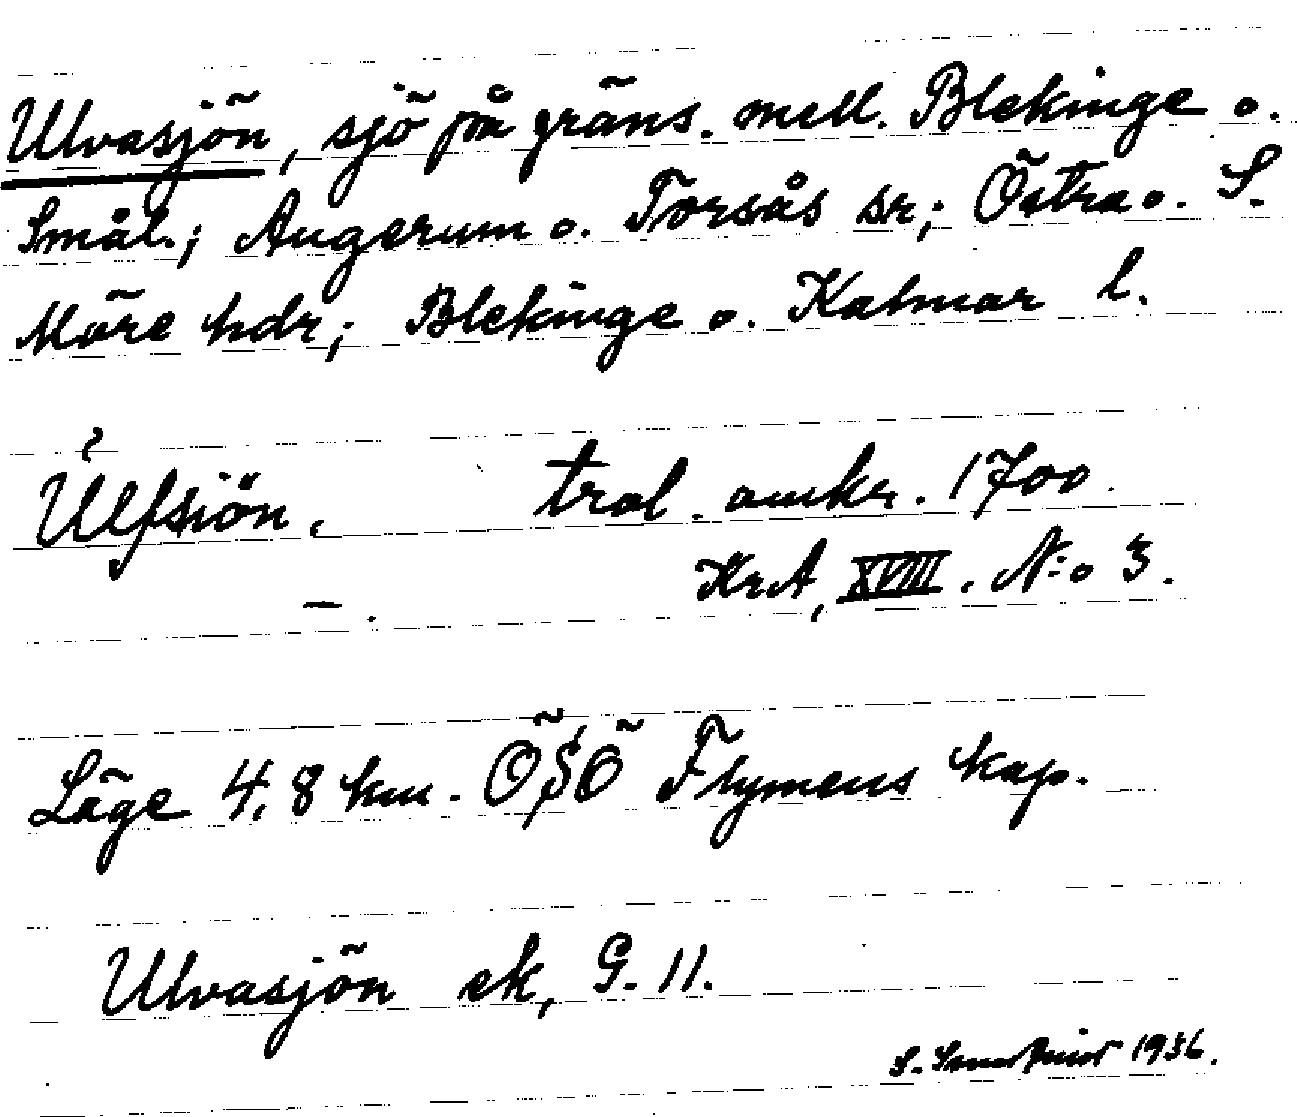 Ulvasjön, sjö på gräns. mell. Blekinge o.
Smål.; Augerum o. Torsås sr; Östra o. S.
Möre hdr; Blekinge o. Kalmar l.
Ulfsiön, trol. omkr. 1700.
—. KrA, XVIII. N:o 3.
Läge 4,8 km. ÖSÖ Flymens kap.
Ulvasjön ek, G. 11.
S. 1936.